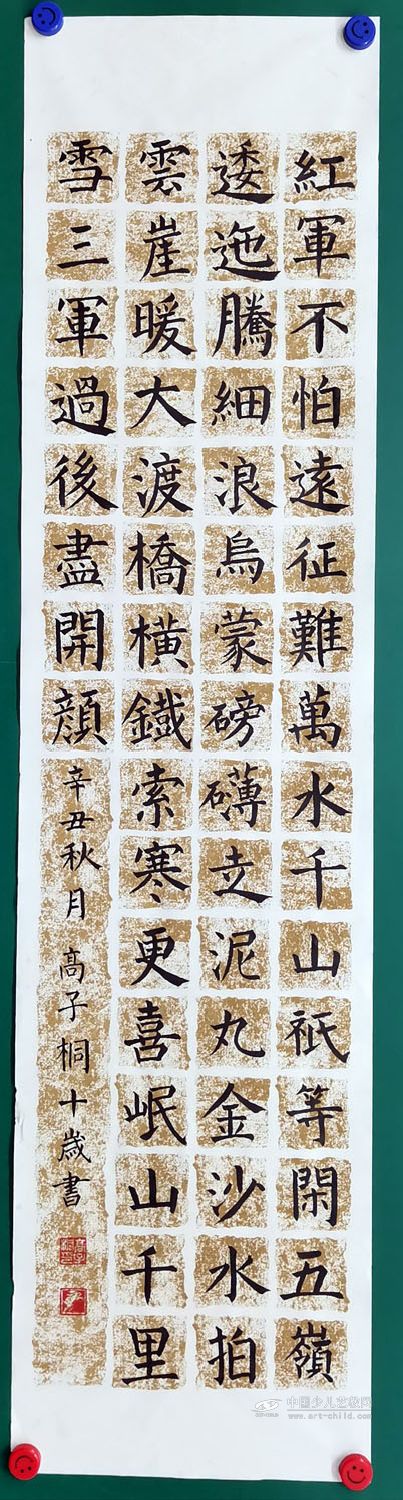 紅軍不怕遠征難萬水千山祇等閑五嶺
逶迤騰細浪烏蒙磅礴走泥丸金沙水拍
雲崖暖大渡橋橫鐵索寒更喜岷山千里
雪三軍過後盡開顔
辛丑秋月 高子桐十歲書
中国少儿艺教网
www.art-child.com